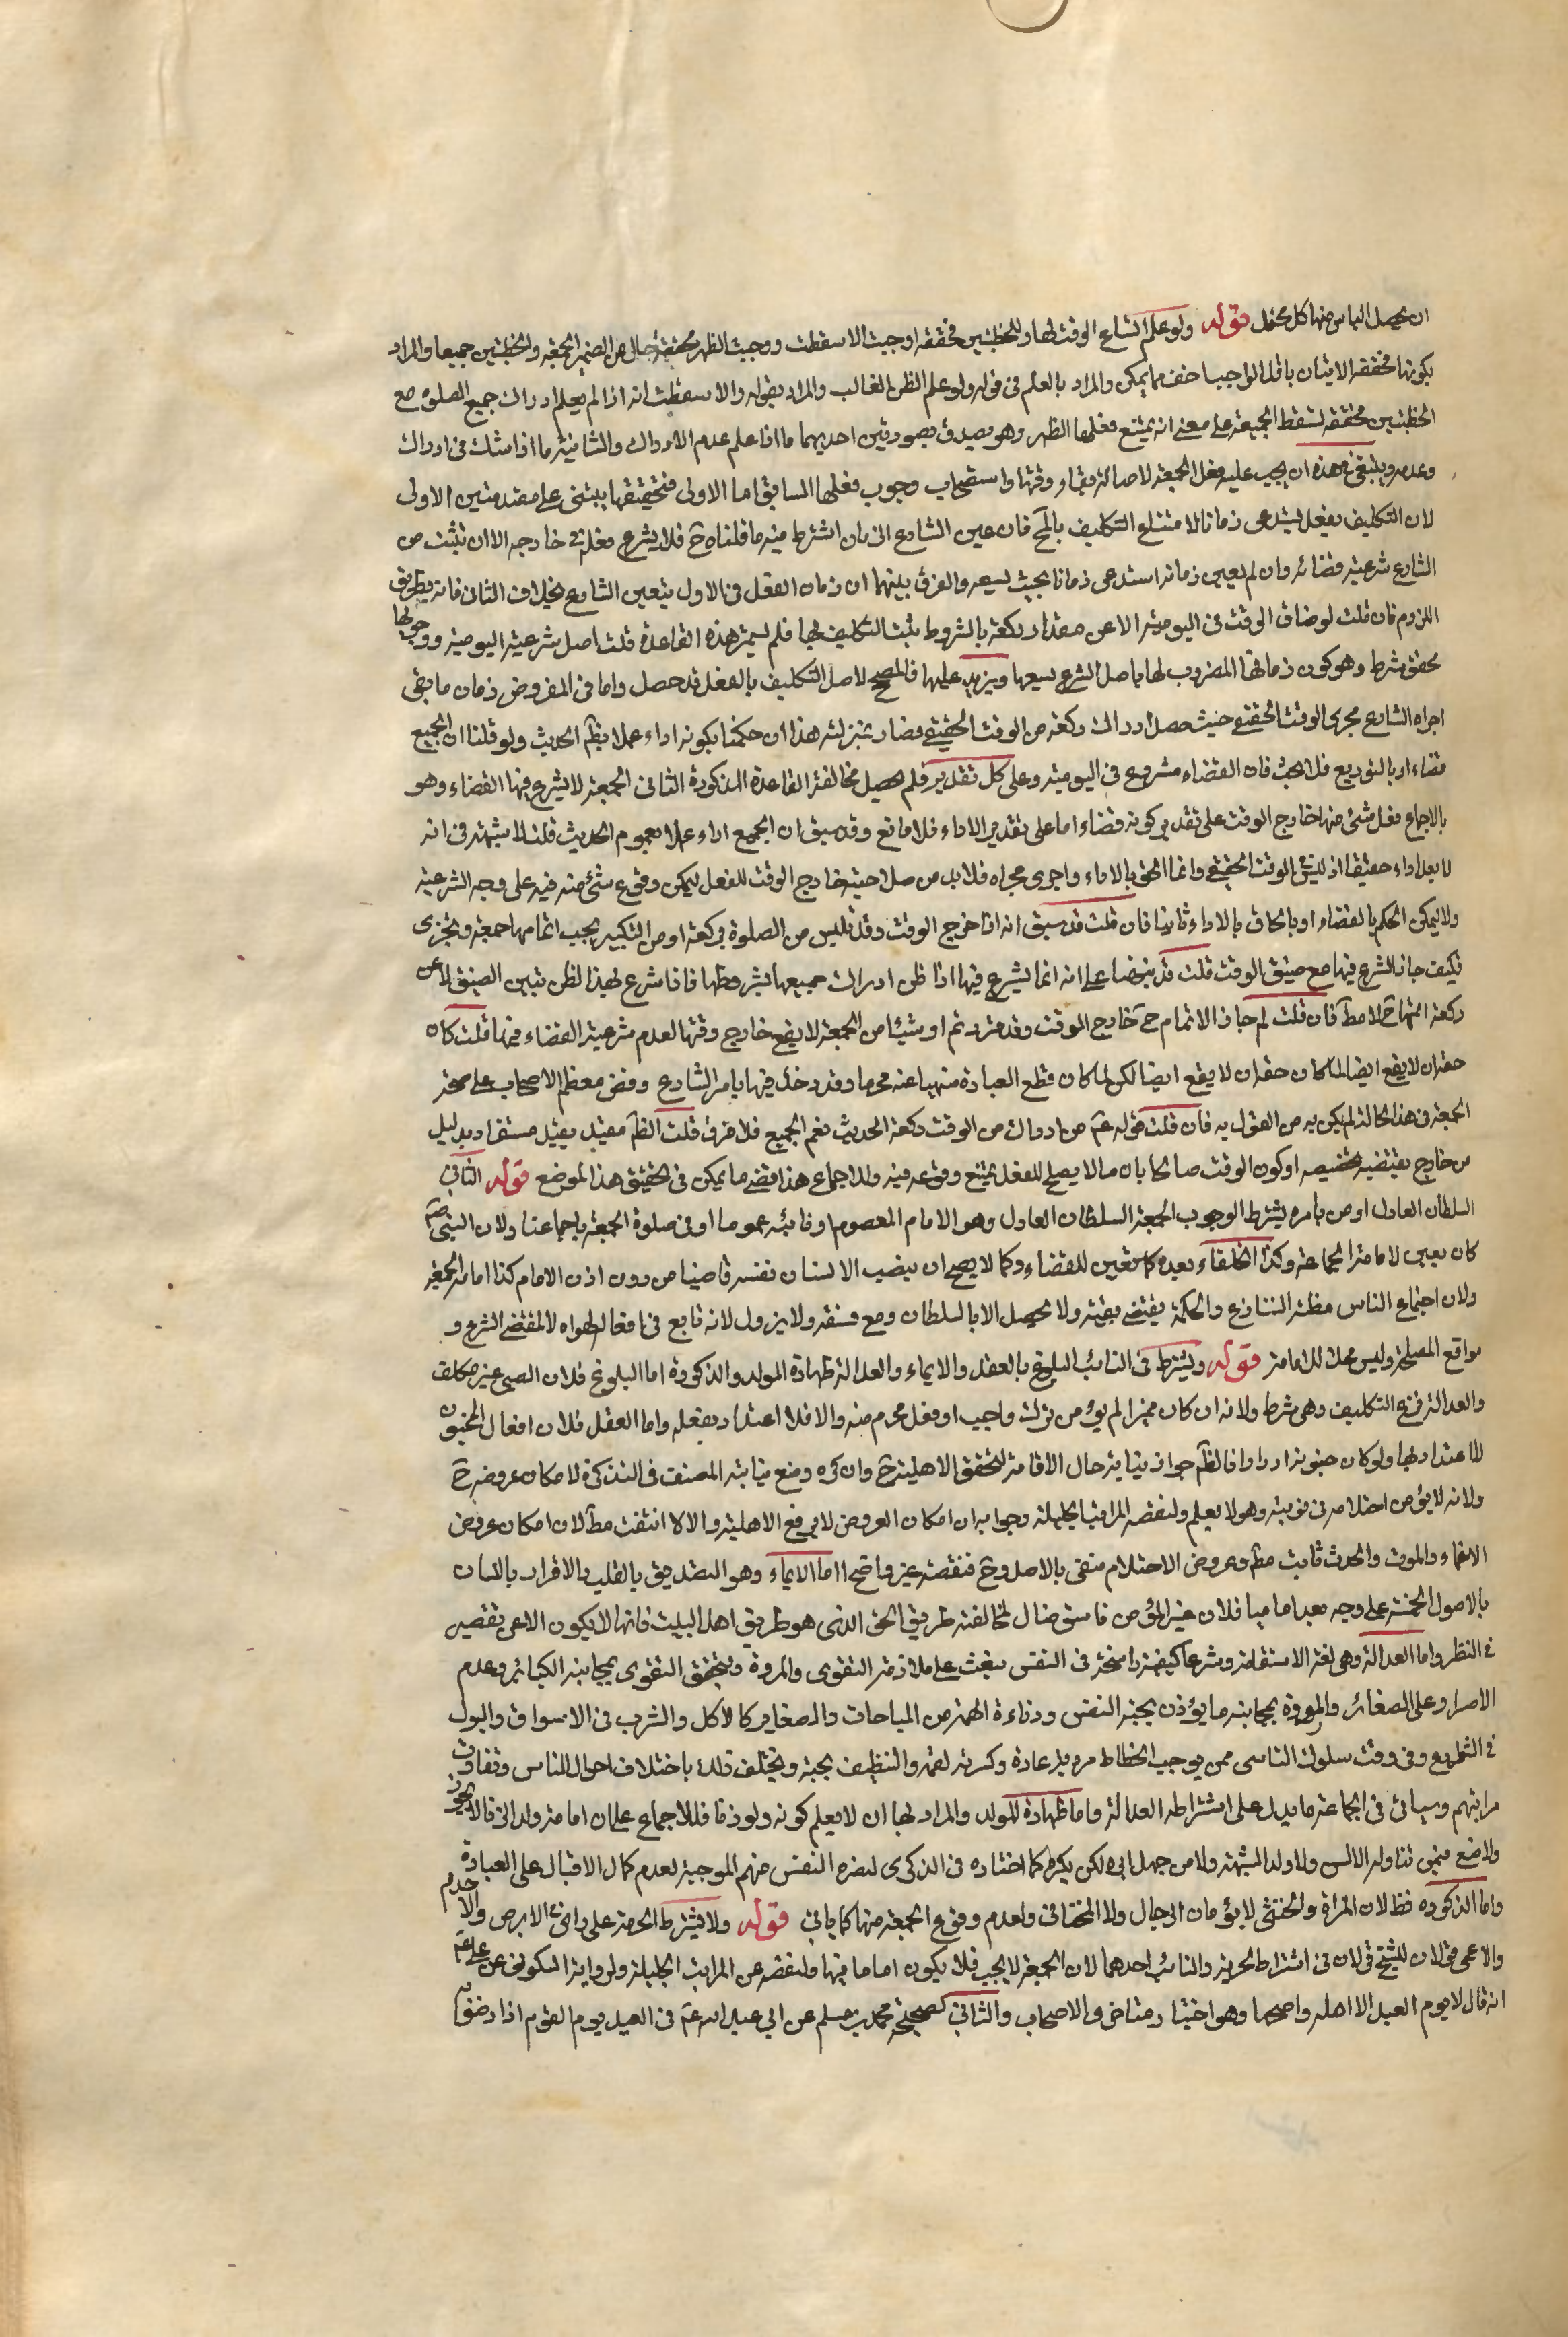 ان يحصل الباس منها كل محتمل قوله ولو علم اتساع الوقت لها وللخطبتين مخففة وجبت والا سقطت ووجبت الظهر مخففة حال من الضمير الجمعة والخطبتين جميعا والمراد
بكونها مخففة الاتيان باقل الواجب اخف ما يمكن والمراد بالعلم في قوله ولو علم الظن الغالب والمراد بقوله والا سقطت انه اذا لم يعلم ادراك جميع الصلوة مع
الخطبتين مخففة لسقط الجمعة على معنى انه يمتنع فعلها الظهر وهو يصدق بصورتين احديهما ما اذا علم عدم الادراك والثانية ما اذا شك في ادراك
وعدمه وينبغي في هذه ان يجب عليه فعل الجمعة لاصالة بقاء وقتها واستصحاب وجوب فعلها السابق اما الاولى فتحقيقها يبتني على مقدمتين الاولى
لان التكليف بفعل يستدعي زمانا لامتناع التكليف بالمح فان عين الشارع الزمان اشترط فيه ما قلناه ح فلا يشرع فعله في خارجه الا ان يثبت من
الشارع شرعية قضائه وان لم يعين زمانه استدعى زمانا بحيث يسعه والفرق بينهما ان زمان الفعل في الاول بتعين الشارع بخلاف الثاني فانه بطريق
اللزوم فان قلت لو ضاق الوقت في اليومية الا عن مقدار ركعة بالشروط يثبت التكليف بها فلم يستمر هذه القاعدة قلت اصل شرعية اليومية ووجوبها
محقق بشرط وهو كون زمانها المضروب لها باصل الشرع يسعها ويزيد عليها فالمصحح لاصل التكليف بالفعل قد حصل واما في المفروض زمان ما بقي
اجراه الشارع مجرى الوقت الحقيقي حيث حصل ادراك ركعة من الوقت الحقيقي فصار بمنزلته هذا ان حكمنا بكونه اداء عملا بظ الحديث ولو قلنا ان الجميع
قضاء او بالتوزيع فلا بحث فان القضاء مشروع في اليومية وعلى كل تقدير فلم يحصل مخالفة القاعدة المذكورة الثاني الجمعة لا يشرع فيها القضاء وهو
بالاجماع فعل شئ منها خارج الوقت على تقدير كونه قضاء اما على تقدير الاداء فلا مانع وقد سبق ان الجميع اداء عملا بعموم الحديث قلنا لا شبهة في انه
لا يعد اداء حقيقا اذ ليس في الوقت الحقيقي وانما الحق بالاداء واجري مجراه فلا بد من صلاحية خارج الوقت للفعل ليمكن وقوع شئ منه فيه على وجه الشرعية
ولا يمكن الحكم بالقضاء او بالحاق بالاداء ثانيا فان قلت قد سبق انه اذا خرج الوقت وقد تلبس من الصلوة بركعة او من التكبير يجب اتمامها جمعة وتجزى
فكيف جاز الشرع فيها مع ضيق الوقت قلت قد بينا على انه انما يشرع فيها اذا ظن ادراك جميعها بشروطها فاذا شرع لهذا الظن تبين الضيق الا عن
ركعة اتمها ح لا مط فان قلت لم جاز الاتمام ح خارج الوقت وقد قررتم ان شيئا من الجمعة لا يقع خارج وقتها لعدم شرعية القضاء فيها قلت كان
حقه ان لا يقع ايضا لما كان حقه ان لا يقع ايضا لكن لما كان قطع العبادة منهيا عنه محرما وقد دخل فيها بامر الشارع ونص معظم الاصحاب على صحة
الجمعة في هذه الحالة لم يكن بد من القول به فان قلت قوله ع من ادرك من الوقت ركعة الحديث نعم الجميع فلا فرق قلت الظ مقيد بقيد مستفاد بدليل
من خارج يقتضيه تخصيصه او كون الوقت صالحا بان ما لا يصلح للفعل يمتنع وقوعه فيه وللاجماع هذا اقصى ما يمكن في تحقيق هذا الموضع قوله الثاني
السلطان العادل او من يأمره يشترط لوجوب الجمعة السلطان العادل وهو الامام المعصوم او نائبه عموما او في صلوة الجمعة باجماعنا ولان النبي ص
كان يعين لامامة الجماعة وكذا الخلفاء بعده كما تعين للقضاء وكما لا يصح ان ينصب الانسان نفسه قاضيا من دون اذن الامام كذا امامة الجمعة
ولان اجتماع الناس مظنة التنازع والحكمة يقتضي نفيه ولا يحصل الا بالسلطان ومع فسقه ولا يزول لانه تابع في افعاله لهواه لا لمقتضى الشرع و
مواقع المصلحة وليس محلا للامامة قوله ويشترط في النائب البلوغ بالعقل والايماء والعدالة وطهارة المولد والذكورة اما البلوغ فلان الصبي غير مكلف
والعدالة فرع التكليف وهي شرط ولانه ان كان مميزا لم يؤمن ترك واجب او فعل محرم منه والا فلا اعتداد بفعله واما العقل فلان افعال المجنون
لا اعتداد لها ولو كان جنونه ادوارا فالظ جواز نيابته حال الافاقة لتحقق الاهلية ح وان كره ومنع نيابته المصنف في التذكرة لامكان عروضه ح
ولانه لا يؤمن احتلامه في نوبته وهو لا يعلم ولنقصه المراتب الجليلة وجوابه ان امكان العروض لا يرفع الاهلية والا لا انتفت مط لان امكان عروض
الاغماء والموت والحدث ثابت مط وعروض الاحتلام منفى بالاصل وح فنقصه غير واضح اما الايماء وهو التصديق بالقلب والاقرار باللسان
بالاصول الخمسة على وجه يعد اماميا فلان غير المؤمن فاسق ضال لمخالفته طريق الحق الذي هو طريق اهل البيت فانها لا يكون الا عن تقصير
في النظر واما العدالة وهي لغة الاستقامة وشرعا كيفية راسخة في النفس يبعث على ملازمة التقوى والمروة ويتحقق التقوى بمجانبة الكبائر وعدم
الاصرار على الصغائر والمروة بمجانبة ما يؤذن بخسة النفس ودناءة الهمة من المباحات والصغاير كالاكل والشرب في الاسواق والبول
في الشوارع وفي وقت سلوك الناس ممن يوجب الحطاط مروته عادة وكسرقة لقمة والتطفيف بحبة ويختلف ذلك باختلاف احوال الناس وتفاوت
مراتبهم وسياتي في الجماعة ما يدل على اشتراطه العدالة واما طهارة المولد والمراد بها ان لا يعلم كونه ولد زنا فللاجماع على ان امامة ولد الزنا لا يجوز
ولا منع فيمن تناوله الالسن ولا ولد الشبهة ولا من جهل ابوه لكن يكره كما اختاره في الذكرى لنفرة النفس منهم الموجبة لعدم كمال الاقبال على العبادة
واما الذكوره فظ لان المراة والخنثى لا يؤمان الرجال ولا الخناثى ولعدم وقوع الجمعة منها كما ياتي قوله ولا يشترط الحرية على راى في الابرص والاجذم
والاعمى قولان للشيخ قولان في اشتراط الحرية والنائب احدهما لان الجمعة لا يجب فلا يكون اماما فيها ولنقصه عن المراتب الجليلة ولرواية السكوني عن علي ع
انه قال لا يوم العبد الا اهله واصحهما وهو اختيار متاخرو الاصحاب والثاني كصحيحة محمد بن مسلم عن ابي عبد الله ع في العبد يوم القوم اذا رضوا